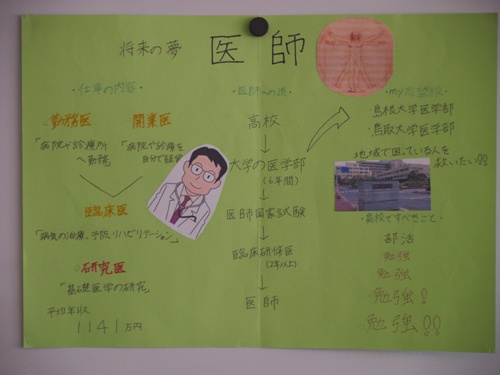 将来の夢 医師
・仕事の内容・
○勤務医
「病院や診療所
へ勤務」
開業医
「病院や診療を
自分で経営
臨床医
「病気の治療、予防、リハビリテーション」
○研究医
「基礎医学の研究」
平均年収
1141万円
・医師への道・
高校
大学の医学部
(6年間)
医師国家試験
臨床研修医
(2年以上)
医師
・my志望校・
・島根大学医学部
・鳥取大学医学部
地域で困っている人を
救いたい!!
・高校ですべきこと・
部活
勉強
勉強
勉強!
勉強!!